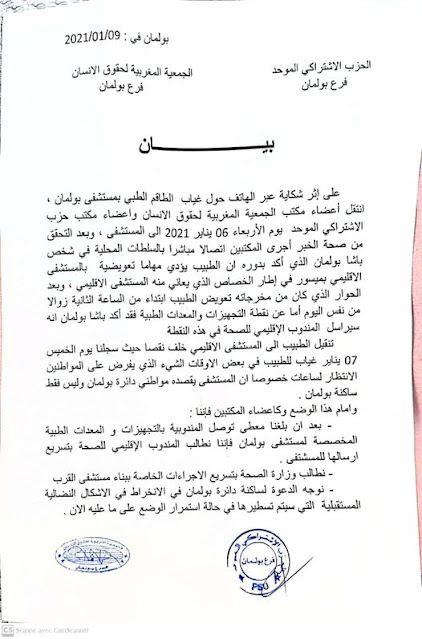 بولمان في : 2021/01/09
الحزب الاشتراكي الموحد
فرع بولمان
الجمعية المغربية لحقوق الانسان
فرع بولمان
بيـــــــــــــــان
على إثر شكاية عبر الهاتف حول غياب الطاقم الطبي بمستشفى بولمان ،
انتقل أعضاء مكتب الجمعية المغربية لحقوق الانسان واعضاء مكتب حزب
الاشتراكي الموحد يوم الأربعاء 06 يناير 2021 الى المستشفى ، وبعد التحقق
من صحة الخبر أجرى المكتبين اتصالا مباشرا بالسلطات المحلية في شخص
باشا بولمان الذي أكد بدوره ان الطبيب يؤدي مهاما تعويضية بالمستشفى
الاقليمي بميسور في إطار الخصاص الذي يعاني منه المستشفى الاقليمي ، وبعد
الحوار الذي كان من مخرجاته تعويض الطبيب ابتداء من الساعة الثانية زوالا
من نفس اليوم أما عن نقطة التجهيزات والمعدات الطبية فقد أكد باشا بولمان انه
سيراسل المندوب الإقليمي للصحة في هذه النقطة
تنقيل الطبيب الى المستشفى الاقليمي خلف نقصا حيث سجلنا يوم الخميس
07 يناير غياب للطبيب في بعض الاوقات الشيء الذي يفرض على المواطنين
الانتظار لساعات خصوصا ان المستشفى يقصده مواطني دائرة بولمان وليس فقط
ساكنة بولمان .
وامام هذا الوضع وكاعضاء المكتبين فإننا :
- بعد ان بلغنا معطى توصل المندوبية بالتجهيزات و المعدات الطبية
المخصصة لمستشفى بولمان فإننا نطالب المندوب الإقليمي للصحة بتسريع
ارسالها للمستشفى .
- نطالب وزارة الصحة بتسريع الاجراءات الخاصة ببناء مستشفى القرب
- نوجه الدعوة لساكنة دائرة بولمان في الانخراط في الاشكال النضالية
المستقبلية التي سيتم تسطيرها في حالة استمرار الوضع على ما عليه الان .
الحزب الاشتراكي الموحد
فرع بولمان
PSU
CS Scanné avec CamScanner